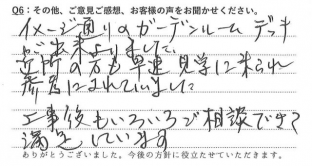 Q6：その他、ご意見ご感想、お客様の声をお聞かせください。
イメージ通りのガーデンルーム デッキ
が出来ました。
近所の方も早速見学に来られ
参考にされていました
工事後もいろいろ相談できて
満足しています
ありがとうございました。今後の方針に役立たせていただきます。